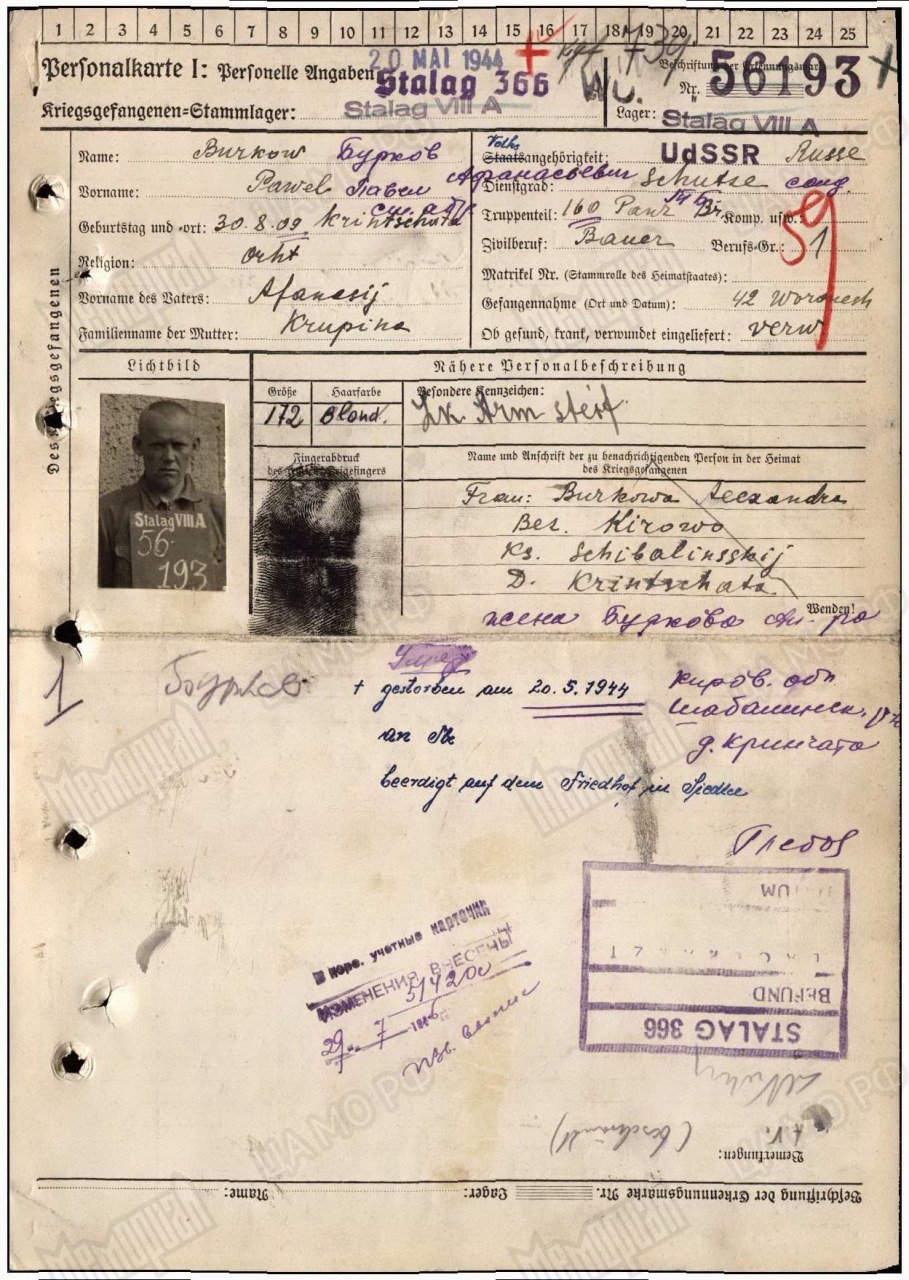 1 2 3 4 5 6 7 8 9 10 11 12 13 14 15 16 17 18 19 20 21 22 23 24 25
Personalkarte I: Personelle Angaben
20 MAI 1944
Stalag 366
Beschriftung der Erkennungsmarke
Nr. 56193
Kriegsgefangenen-Stammlager: Stalag VIII A
Lager: Stalag VIII A
Des Kriegsgefangenen
Name: Burkow Бурков
Vorname: Pawel Павел Афанасьевич
Geburtstag und -ort: 30.8.09 Krintschata
Religion: orth
Vorname des Vaters: Afanasij
Familienname der Mutter: Krupina
Volks
Staatsangehörigkeit: UdSSR Russe
Dienstgrad: Schutze солд
Truppenteil: 160 Panz Br. Komp. usw.:
59
Zivilberuf: Bauer Berufs-Gr.: 1
Matrikel Nr. (Stammrolle des Heimatstaates):
Gefangennahme (Ort und Datum): 42 Woronesh
Ob gesund, krank, verwundet eingeliefert: verw
Lichtbild
Nähere Personalbeschreibung
Größe Haarfarbe Besondere Kennzeichen:
172 Blond. Lk Arm steif
Stalag VIII A
56
193
Fingerabdruck
des Zeigefingers
Name und Anschrift der zu benachrichtigenden Person in der Heimat
des Kriegsgefangenen
Frau: Burkowa Alexandra
Bez. Kirowo
Ks. Schibalinsskij
D. Krintschata
Wenden!
жена Буркова Ал-ра
1 Бурков
+ gestorben am 20.5.1944
an Tbc
beerdigt auf dem Friedhof in Siedlce
Киров. обл
Шабалинск. р-н
д. Кринчата
Глебов
В коре. учетные карточки
ИЗМЕНЕНИЯ ВНЕСЕНЫ
51420с
29 7 194
DATUM
LAGERARZT
BEFUND
STALAG 366
Bemerkungen:
Beschriftung der Erkennungsmarke Nr.
Lager:
Name:
МЕМОРИАЛ
ЦАМО РФ